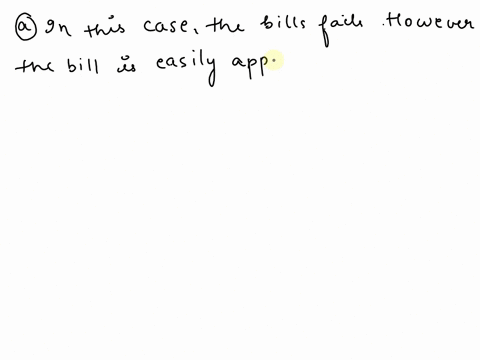 (a) In this case, the bills fails. However
the bill is easily app.